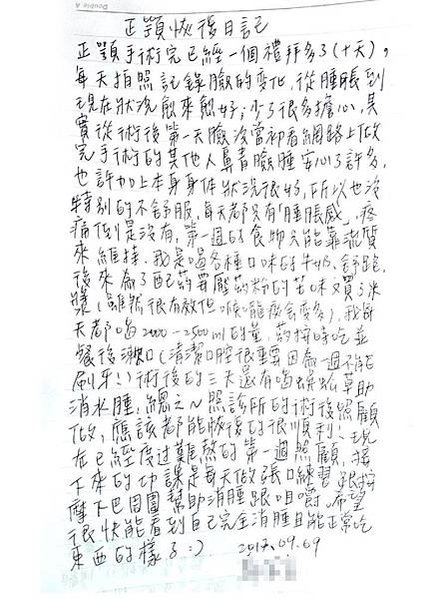 正顎恢後日記
正顎手術完已經一個禮拜多了(十天)。
每天拍照記錄臉的變化,從腫脹到
現在狀況愈來愈好,少了很多擔心,其
實從術後第一天臉沒當初看網路上做
完手術的其他人鼻青臉腫安心了許多,
也許加上本身身體狀況很好,所以也沒
特別的不舒服,每天都只有「腫脹感」,疼
痛倒是沒有,第一週的食物只能靠流質
來維持,我是喝各種口味的牛奶、舒跑,
後來為了配藥要壓藥粉的苦味又買了米
漿(雖然很有效但喉嚨痰會變多),我每
天都喝2000-2500ml的量,藥按時吃並
餐後漱口(清潔口腔很重要因為一週不能
刷牙!)術後的三天還有喝蜆蚬草助
消水腫,總之~照診所的術後照顧
做,應該都能恢復的很順利!現
在已經度过難熬的第一週照顧,接
下來的功課是每天做張口練習跟按
摩下巴周圍幫助消腫跟咀嚼,希望
很快能看到自己完全消腫且能正常吃
東西的樣子:) 2017.09.09